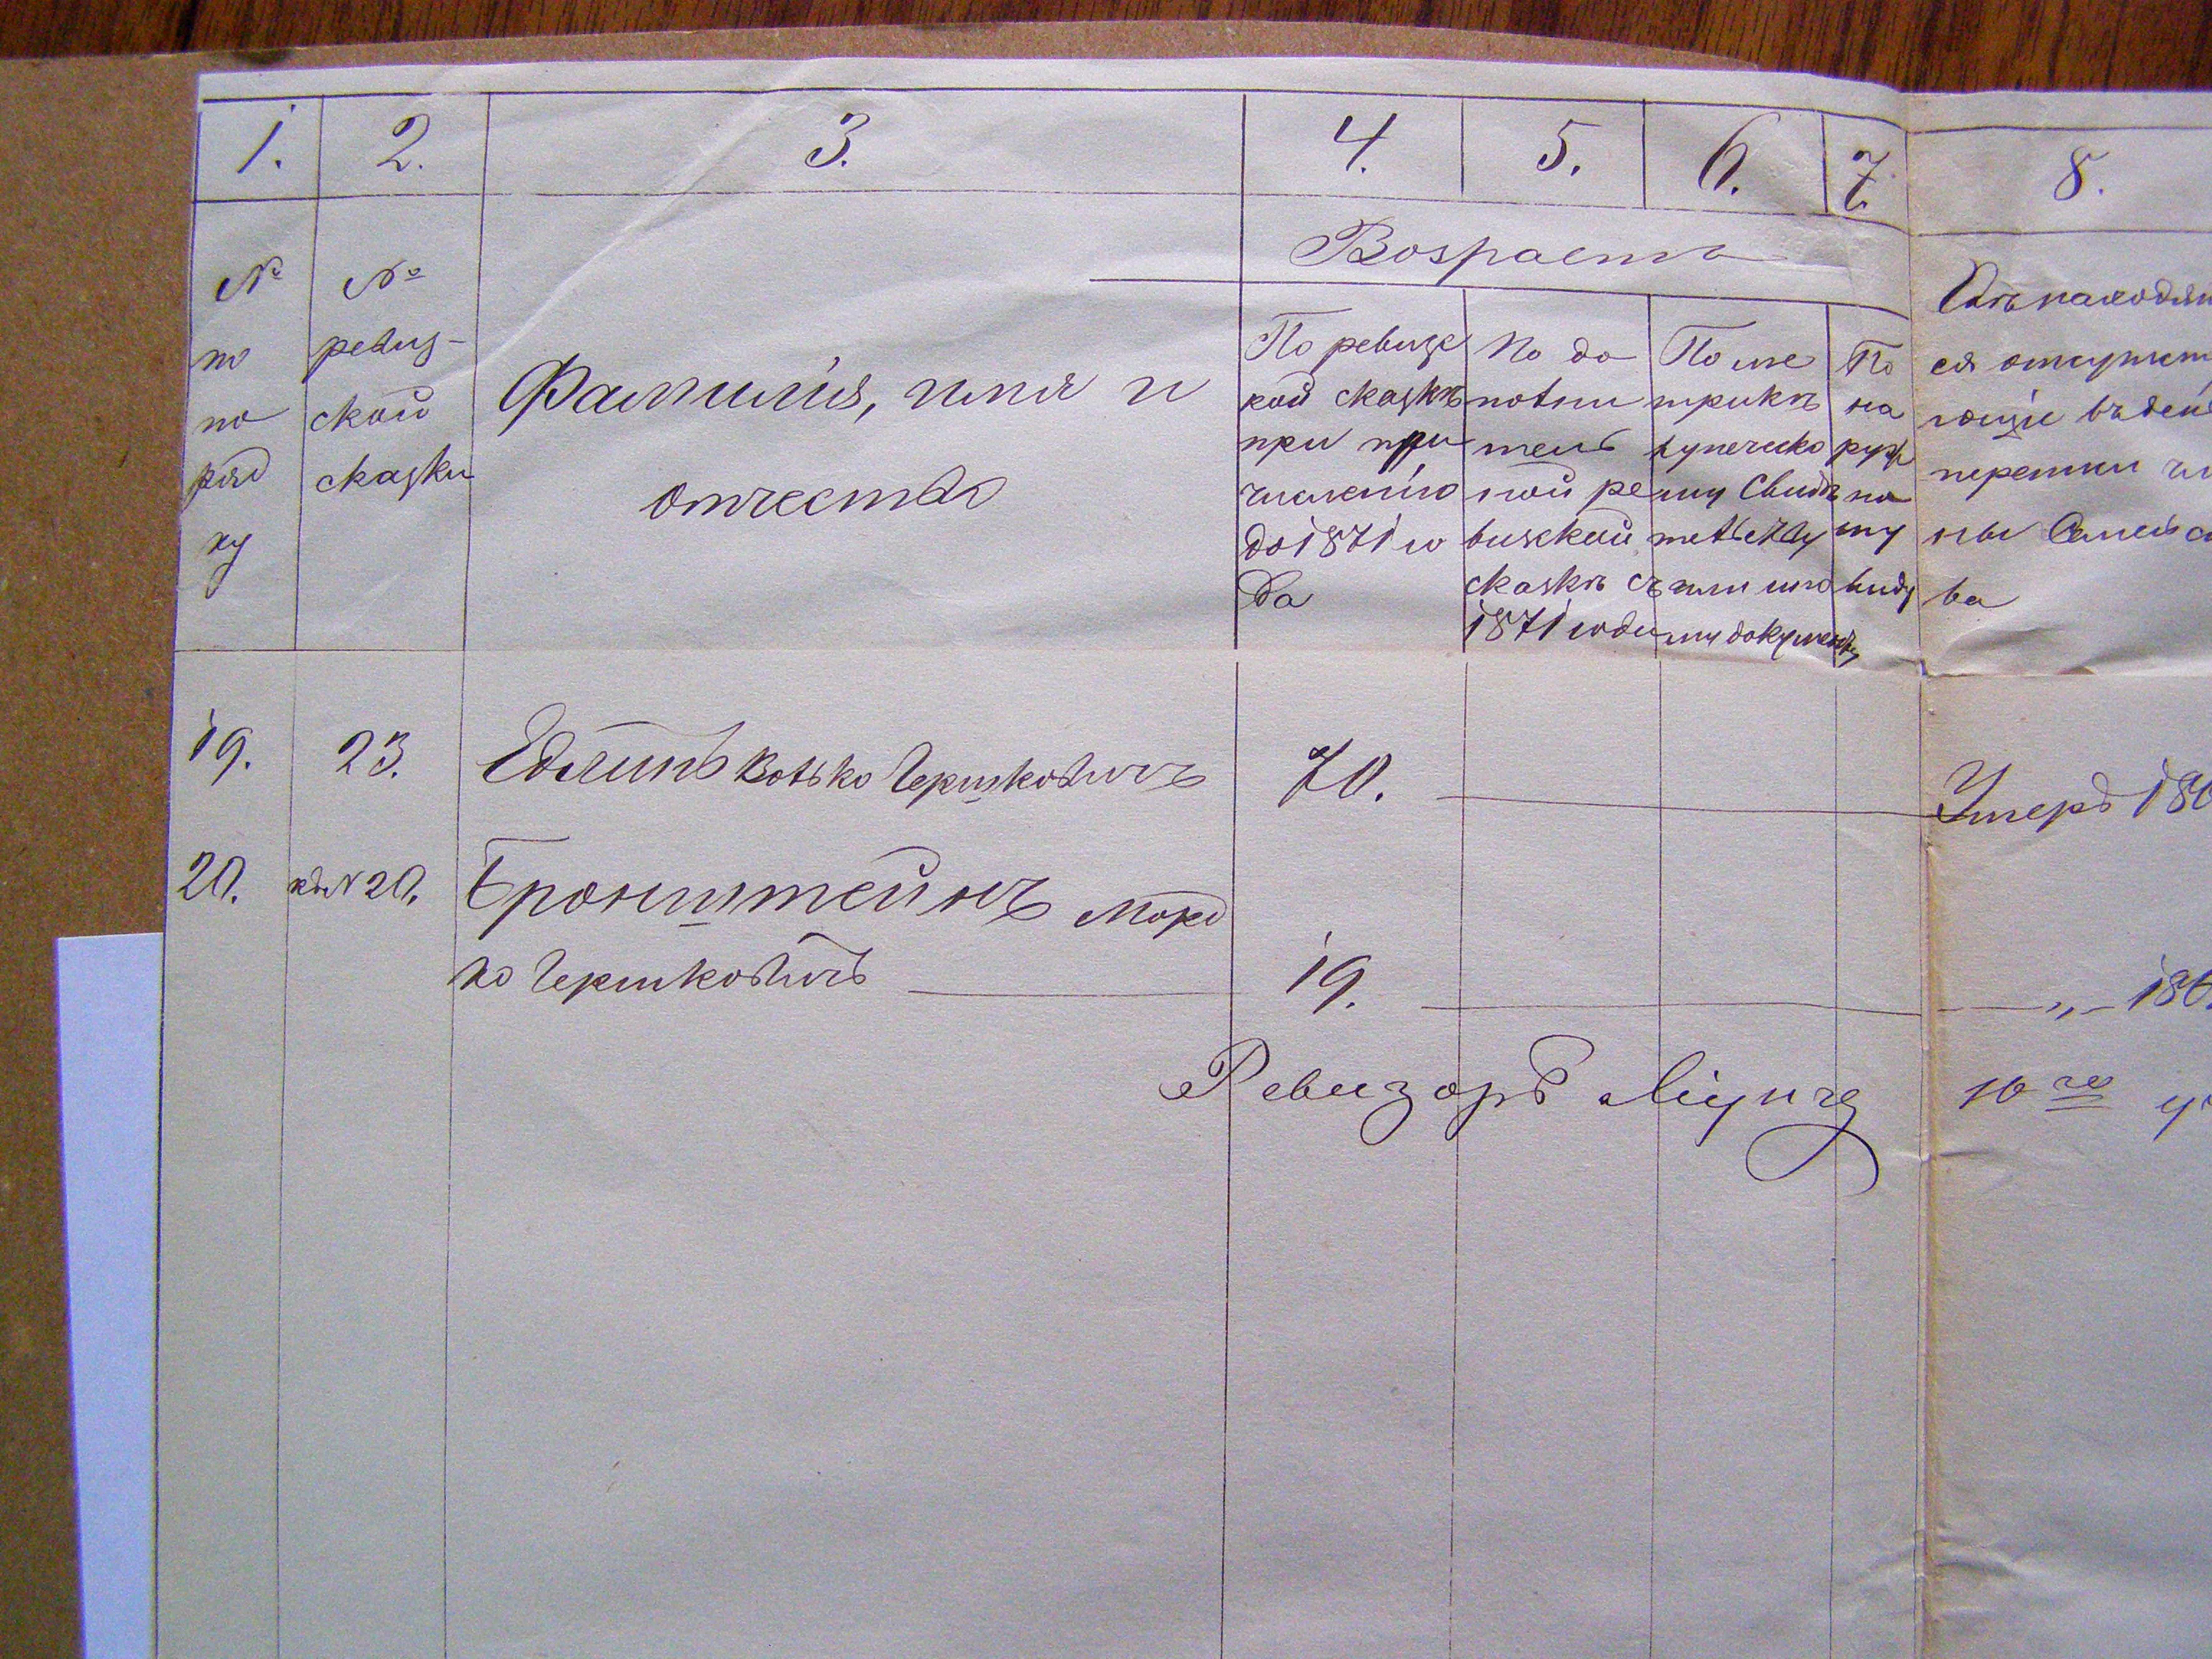 1. 2. 3. 4. 5. 6. 7. 8.
Возрастъ
№ по поряд ку
№ ревиз- ской сказки
Фамилія, имя и
отчество
По ревизс
кой сказкѣ
при при
численію
до 1871 го
да
По до
полни
тель
ной ре
визской
сказкѣ съ
1871 года
По ме
трикѣ
купческо
му свидѣ
тельству
или ино
му документу
По
на
руж
но
му
виду
ся отсутств
ющіе въ дей
ны Семейс
ва
19. 23. Едлинъ Волько Гершковичъ 70. Умеръ 18
20. къ № 20. Бронштейнъ Морд
ко Гершковичъ 19. —„— 18
Ревизоръ
10 го